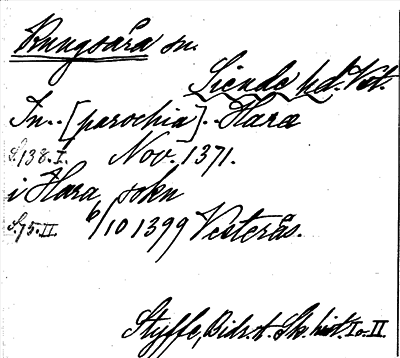 Kungsåra sn.
Siende hd. Vstm.
In.. [parochia].. Haræ
S. 138. I. Nov. 1371.
i Hara sokn
S. 75. II. 6/10 1399 Vesterås.
Styffe, Bidr. t. Sk. hist. I o. II